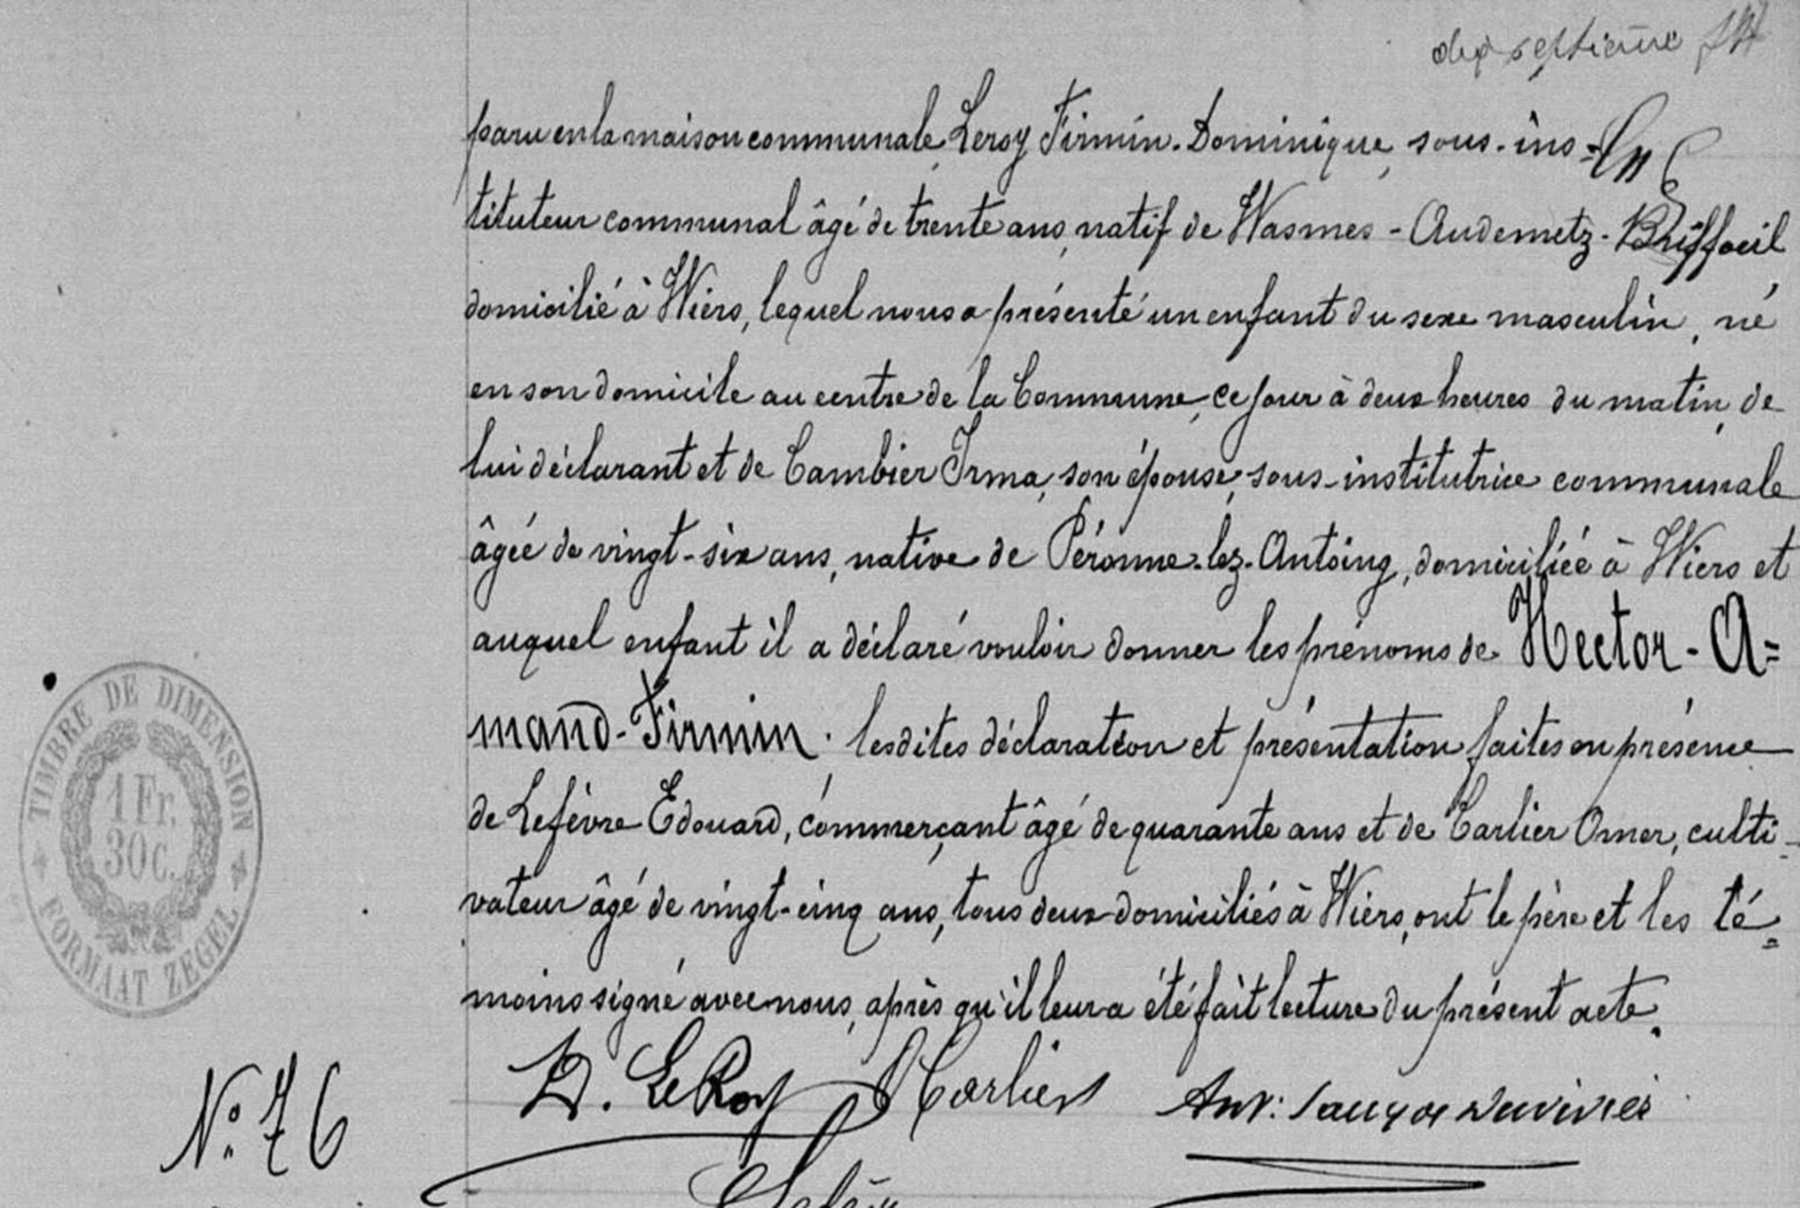 dix septième
paru en la maison communale, Leroy Firmin-Dominique, sous-ins=
tituteur communal âgé de trente ans, natif de Wasmes-Audemetz-Briffoeil
domicilié à Wiers, lequel nous a présenté un enfant du sexe masculin, né
en son domicile au centre de la Commune, ce jour à deux heures du matin, de
lui déclarant et de Cambier Irma, son épouse, sous-institutrice communale
âgée de vingt-six ans, native de Péronne-lez-Antoing, domiciliée à Wiers et
auquel enfant il a déclaré vouloir donner les prénoms de Hector-A=
mand-Firmin. lesdites déclaration et présentation faites en présence
de Lefèvre Edouard, commerçant âgé de quarante ans et de Carlier Omer, culti-
vateur âgé de vingt-cinq ans, tous deux domiciliés à Wiers, ont le père et les té=
moins signé avec nous, après qu'il leur a été fait lecture du présent acte.
D. LeRoy Carlier Duvivier
TIMBRE DE DIMENSION
1 Fr.
30 C.
FORMAAT ZEGEL
N° 76